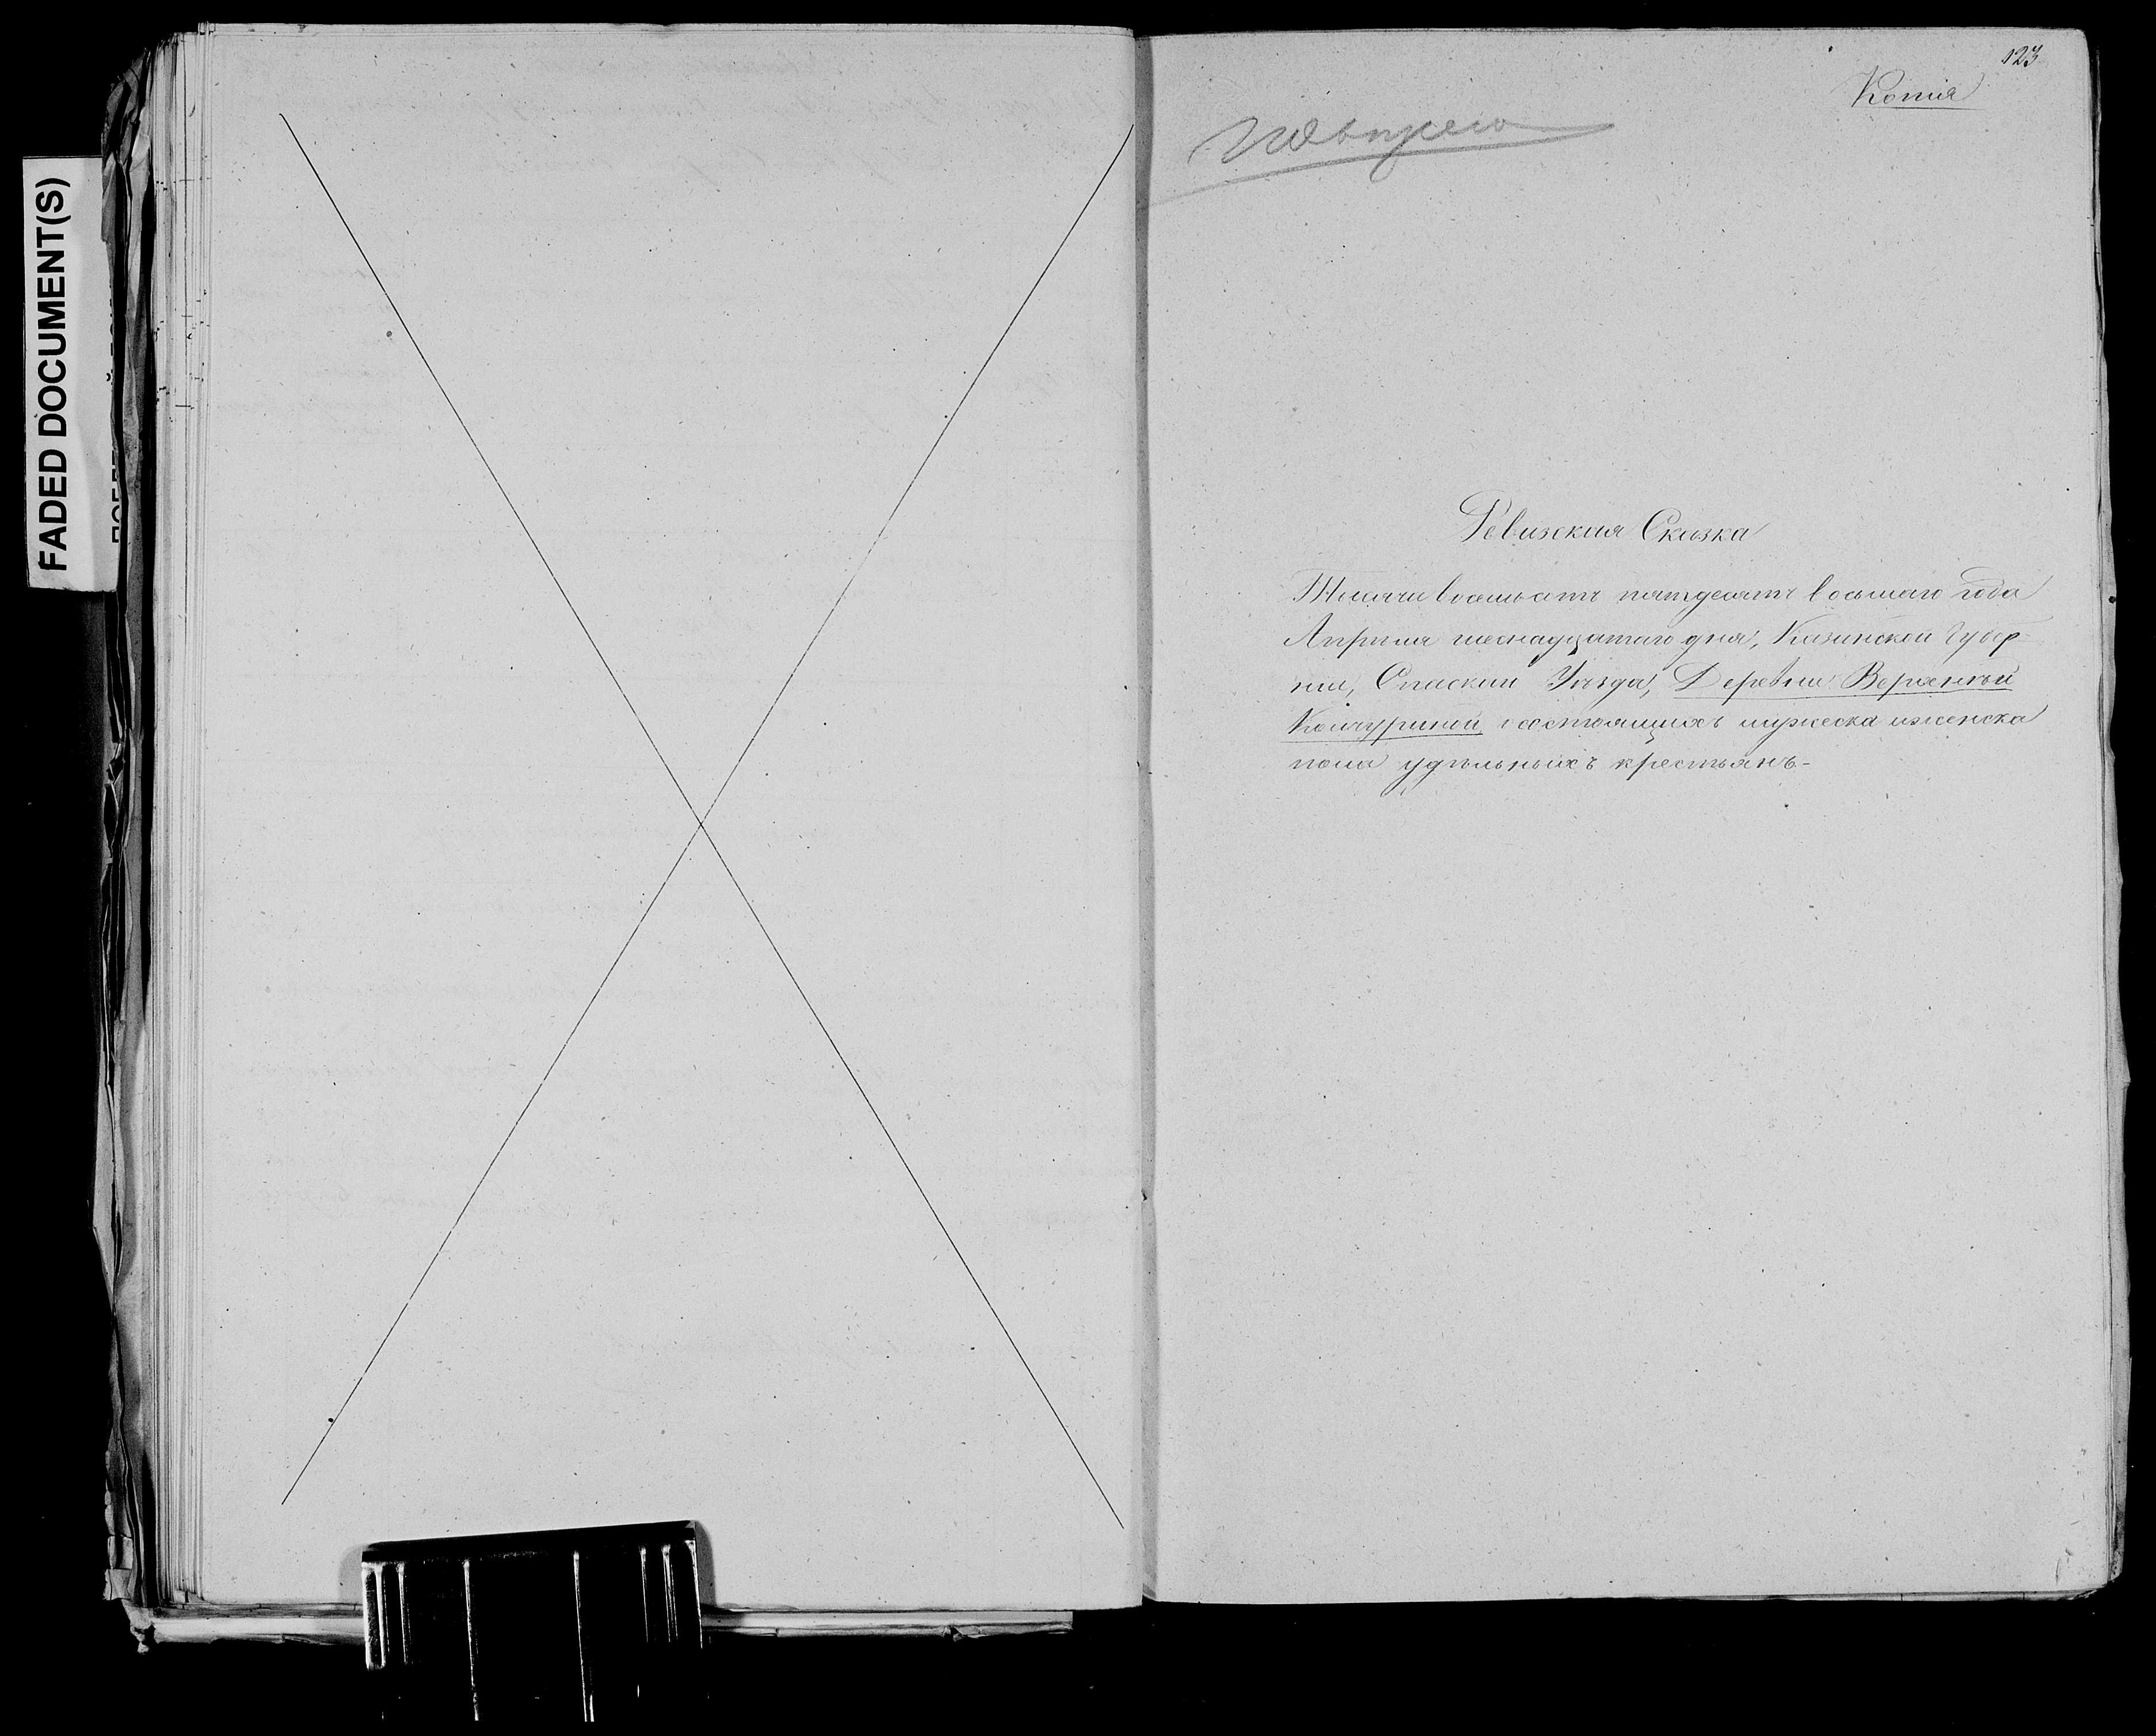 FADED DOCUMENT(S)
123
Копия
Ревизская Сказка
Тысячи восемьсот пятдесятъ восьмаго года
Апрѣля шеснадцатаго дня, Казанской Губер
нии, Спаским Уѣзда, Деревни Верхней
Кочуриной состоящихъ мужеска и женска
пола удѣльныхъ крестьянъ-